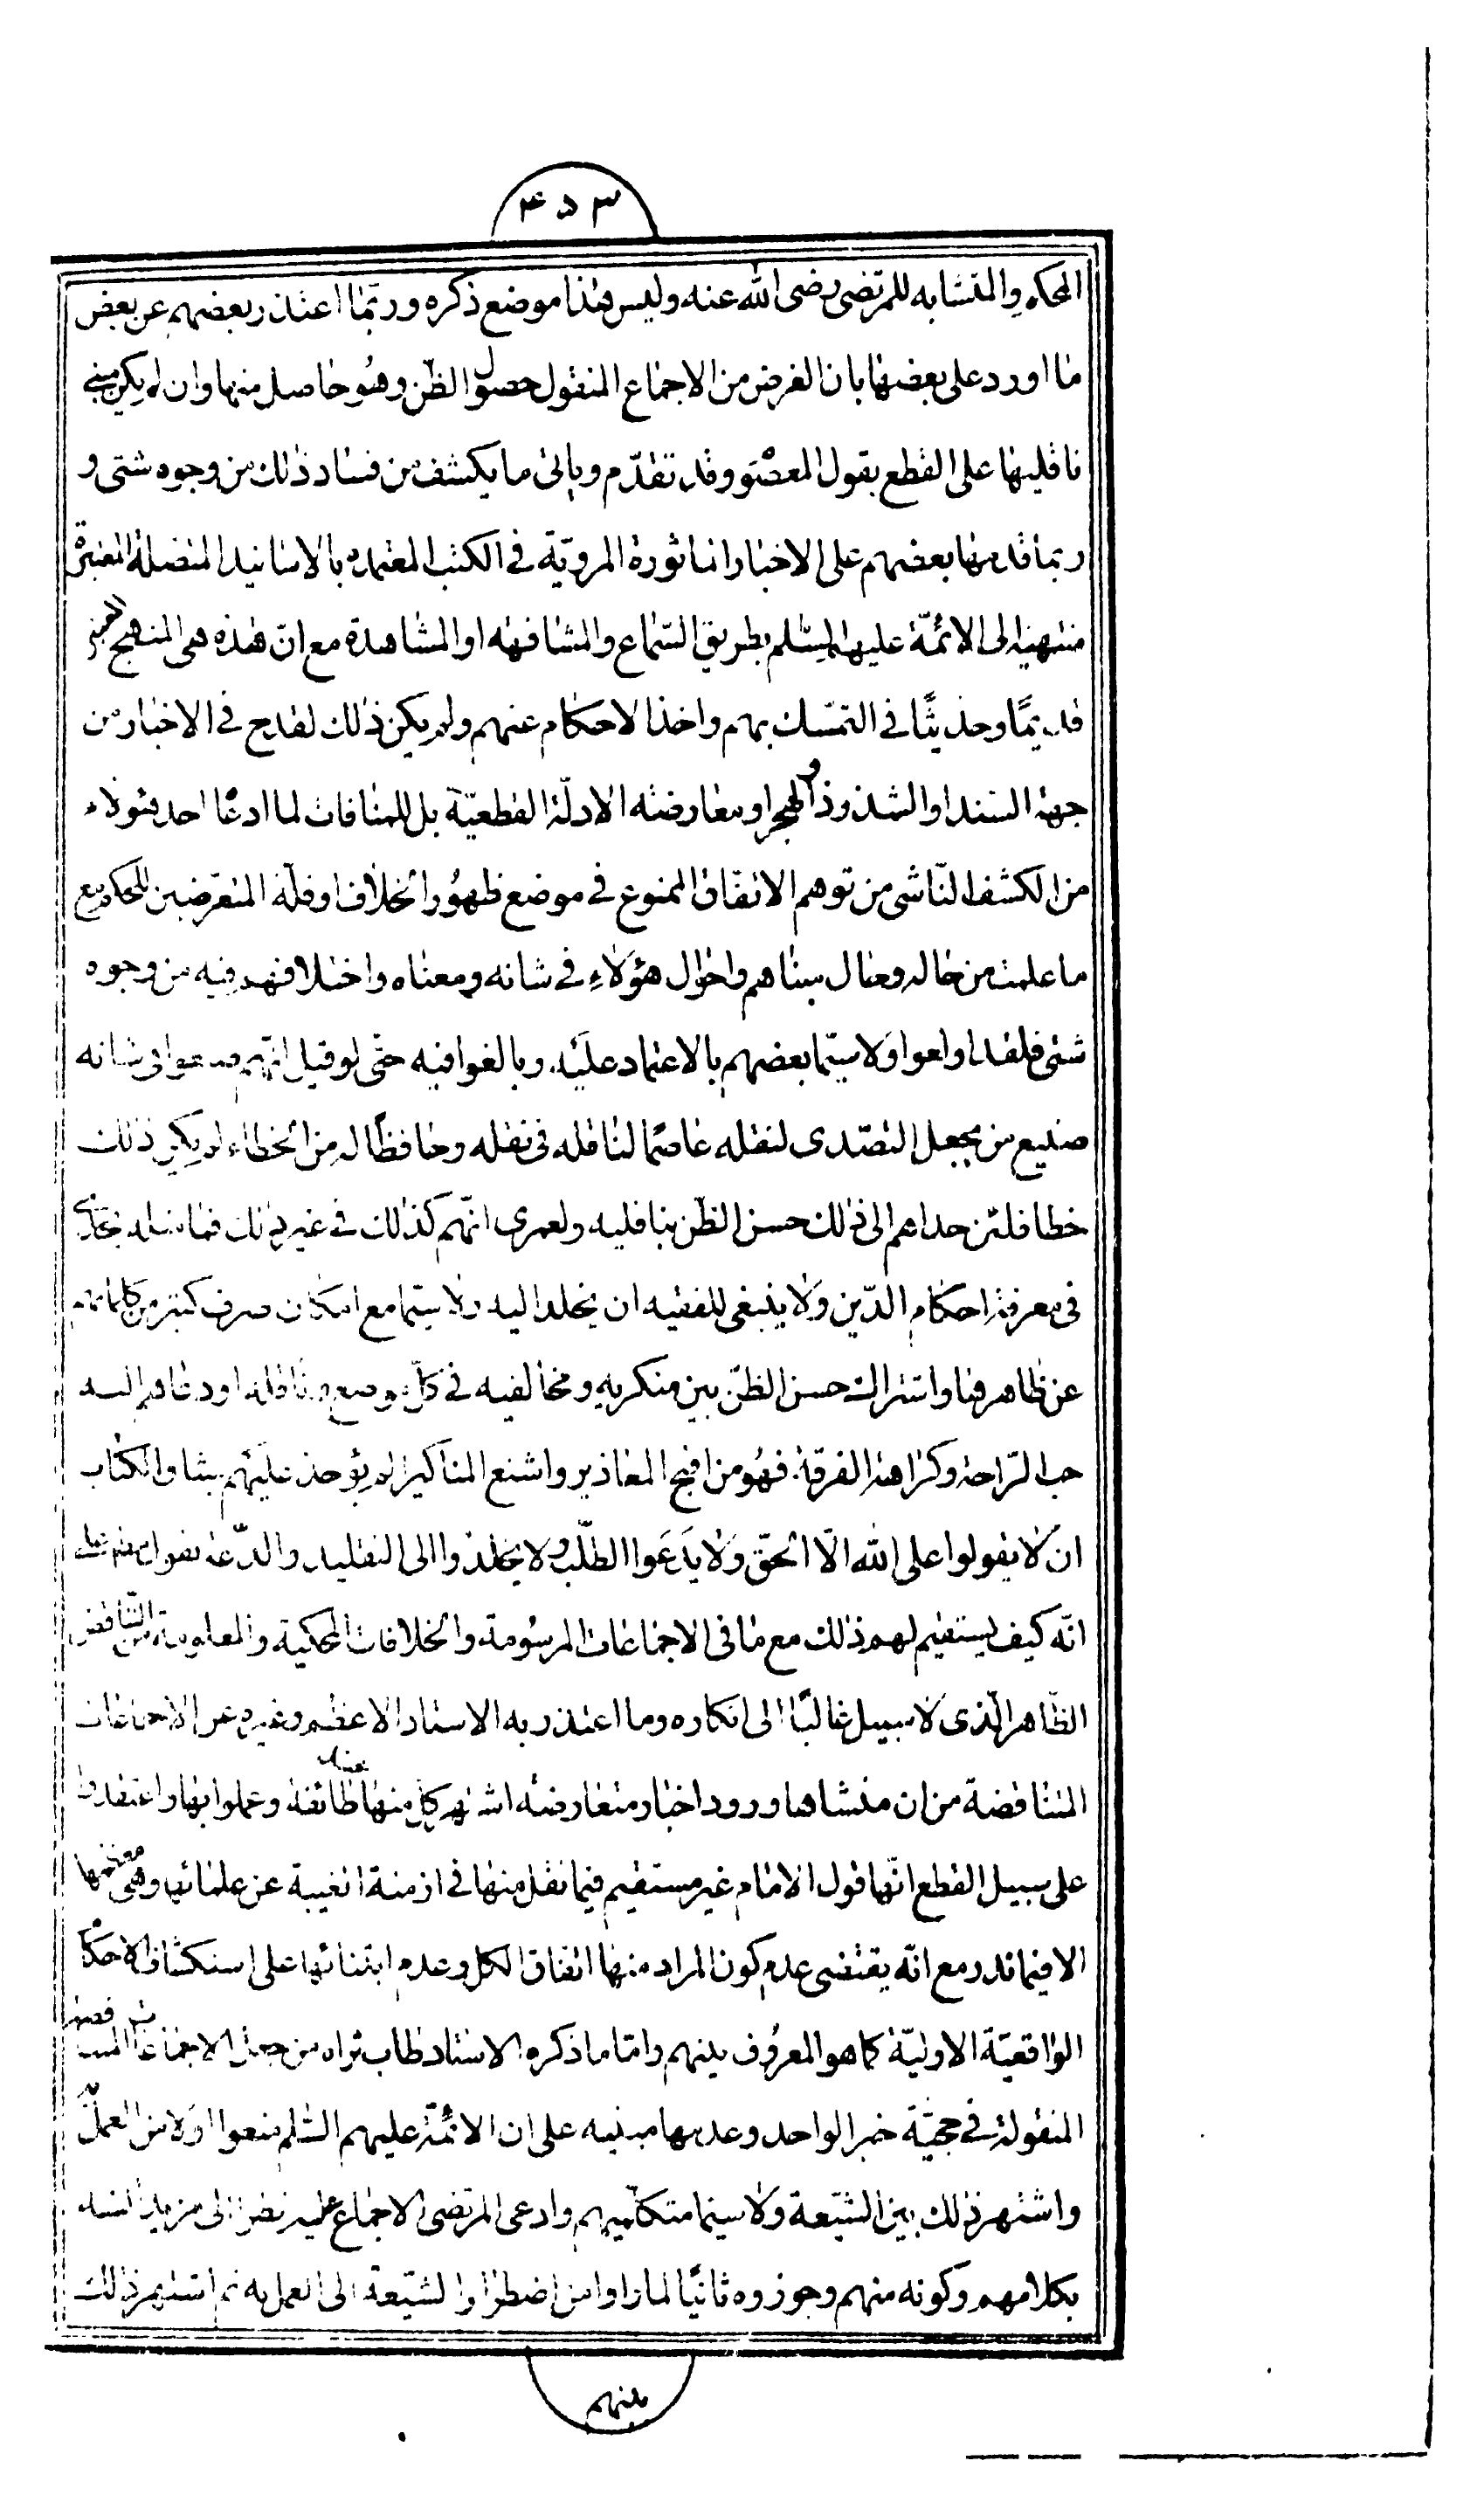 ۴۵۳
المحكم والمتشابه للمرتضى رضى الله عنه وليس هذا موضع ذكره وربما اعتذر بعضهم عن بعض
ما اورد على بعضها بان الغرض من الاجماع المنقول حصول الظن وهو حاصل منها وان لم يكن مبنى
ناقليها على القطع بقول المعصوم وقد تقدم وياتى ما يكشف عن فساد ذلك من وجوه شتى و
ربما قدمها بعضهم على الاخبار الماثورة المروية فى الكتب المعتمده بالاسانيد المتصلة المعتبرة
منتهية الى الائمة عليهم السلم بطريق السماع والمشافهه او المشاهدة مع ان هذه هى المنهج
قديما وحديثا فى التمسك بهم واخذ الاحكام عنهم ولم يكن ذلك لقدح فى الاخبار من
جهة السند او الشذوذ والهجر او معارضته الادلة القطعية بل للمنافات لما ادعا احد هؤلاء
من الكشف الناشى من توهم الاتفاق الممنوع فى موضع ظهور الخلاف او قلة المتعرضين للحكم مع
ما علمت من حاله وحال مبناهم واحوال هؤلاء فى شانه ومعناه واختلافهم فيه من وجوه
شتى فلقد اولعوا ولا سيما بعضهم بالاعتماد عليه وبالغوا فيه حتى لو قيل انهم صنعوا فى شانه
صنيع من يجعل التصدى لنقله عاصما لناقله فى نقله وحافظا له من الخطاء لم يكن ذلك
خطا فلئن حداهم الى ذلك حسن الظن بناقليه ولعمرى انهم كذلك فى غير ذلك فما
فى معرفة احكام الدين ولا ينبغى للفقيه ان يخلد اليه ولا سيما مع امكان صرف كثير من كلماتهم
عن ظاهرها واشتراك حسن الظن بين منكريه ومخالفيه فى كل موضع وناقليه او دعاهم اليه
حب الراحة وكراهة الفرقة فهو من اقبح المعاذير واشنع المناكير الم يؤخذ عليهم ميثاق الكتاب
ان لا يقولوا على الله الا الحق ولا يدعوا الطلب ولا يخلدوا الى التقليد والدعة
انه كيف يستقيم لهم ذلك مع ما فى الاجماعات المرسومة والخلافات المحكية والمعلومة من التناقض
الظاهر الذى لا سبيل غالبا الى انكاره وما اعتذر به الاستاد الاعظم وغيره عن الاجماعات
المتناقضة من ان منشاها ورود اخبار متعارضه اشتهر كل منها عند طائفة وعملوا بها واعتقدوا
على سبيل القطع انها قول الامام غير مستقيم فيما نقل منها فى ازمنة الغيبة عن علمائها وهى معظمها
الا فيما ندر مع انه يقتضى عدم كون المراد منها اتفاق الكل وعدم ابتنائها على استكشاف الاحكام
الواقعية الاولية كما هو المعروف بينهم واما ما ذكره الاستاد طاب ثراه من جعل الاجماعات المتناقضة
المنقولة فى حجية خبر الواحد وعدمها مبنيه على ان الائمة عليهم السلم منعوا اولا من العمل به
واشتهر ذلك بين الشيعة ولا سيما متكلميهم وادعى المرتضى الاجماع عليه نظرا الى مزيد انسه
بكلامهم وكونه منهم وجوزوه ثانيا لما راوا من اضطرار الشيعة الى العمل به ثم اشتهر ذلك
بينهم